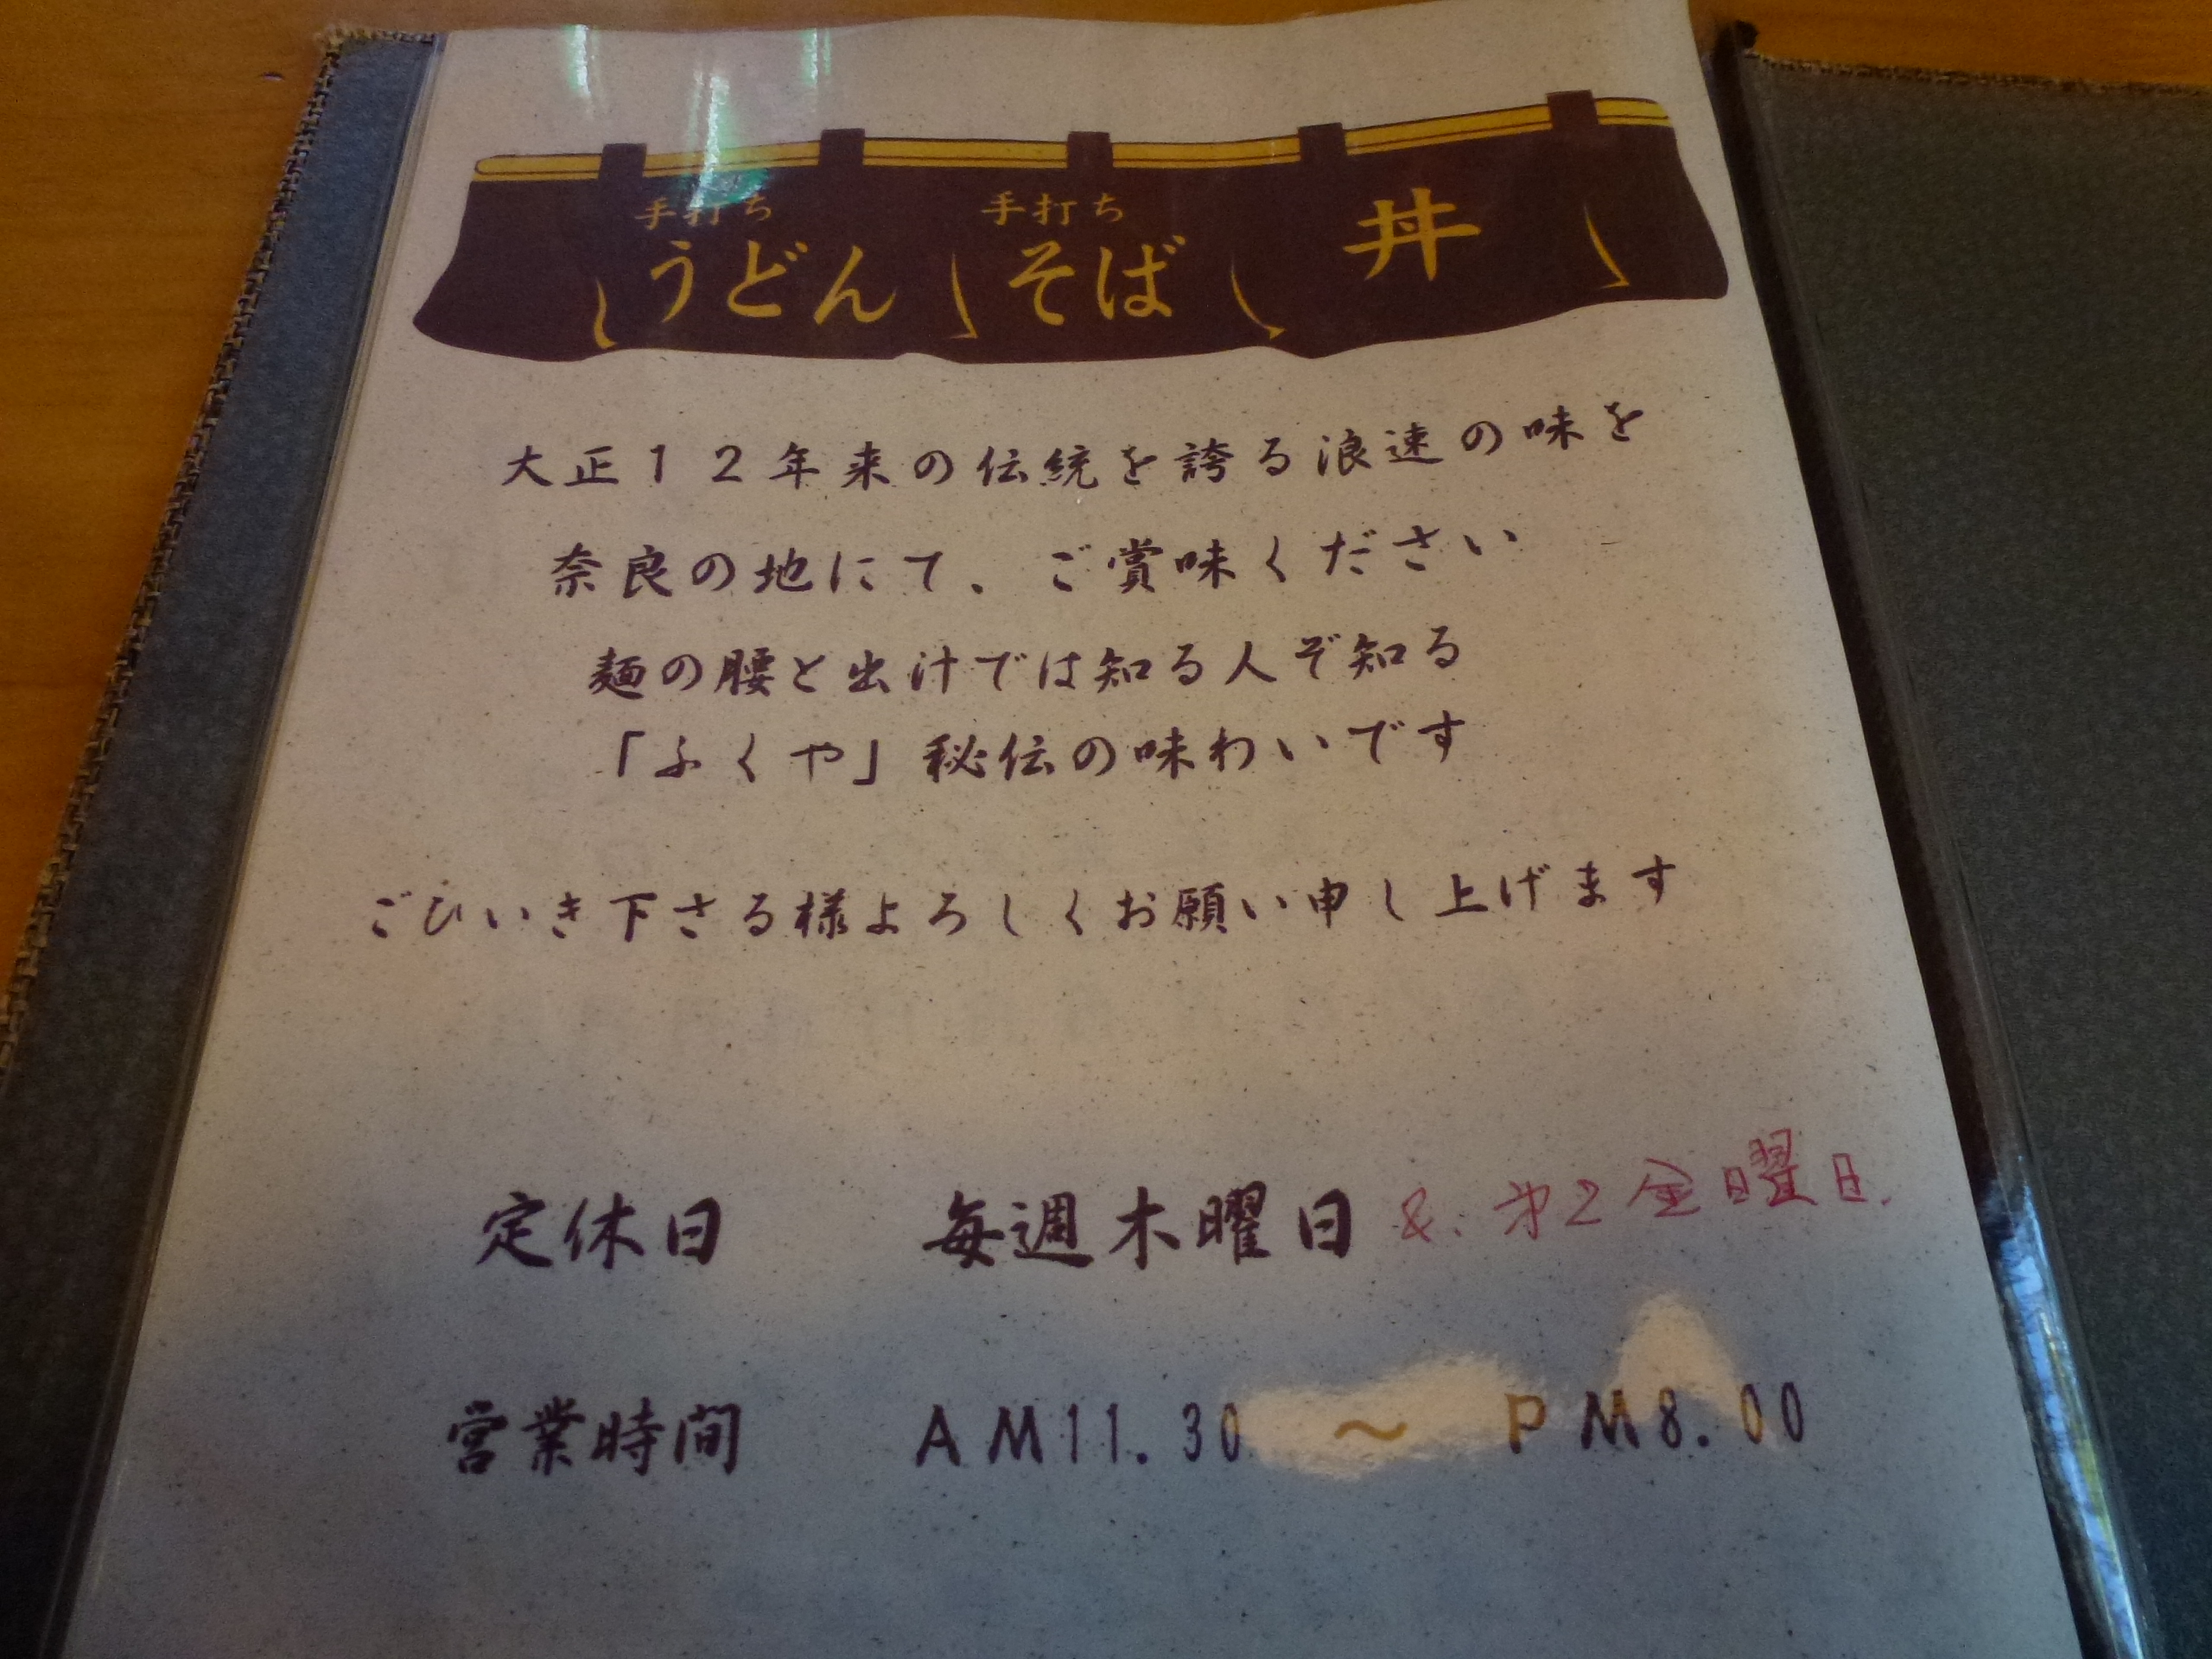 手打ち 手打ち
うどん そば 丼
大正12年来の伝統を誇る浪速の味を
奈良の地にて、ご賞味ください
麺の腰と出汁では知る人ぞ知る
「ふくや」秘伝の味わいです
ごひいき下さる様よろしくお願い申し上げます
定休日 毎週木曜日 &. 第2金曜日.
営業時間 AM11.30 ～ PM8.00